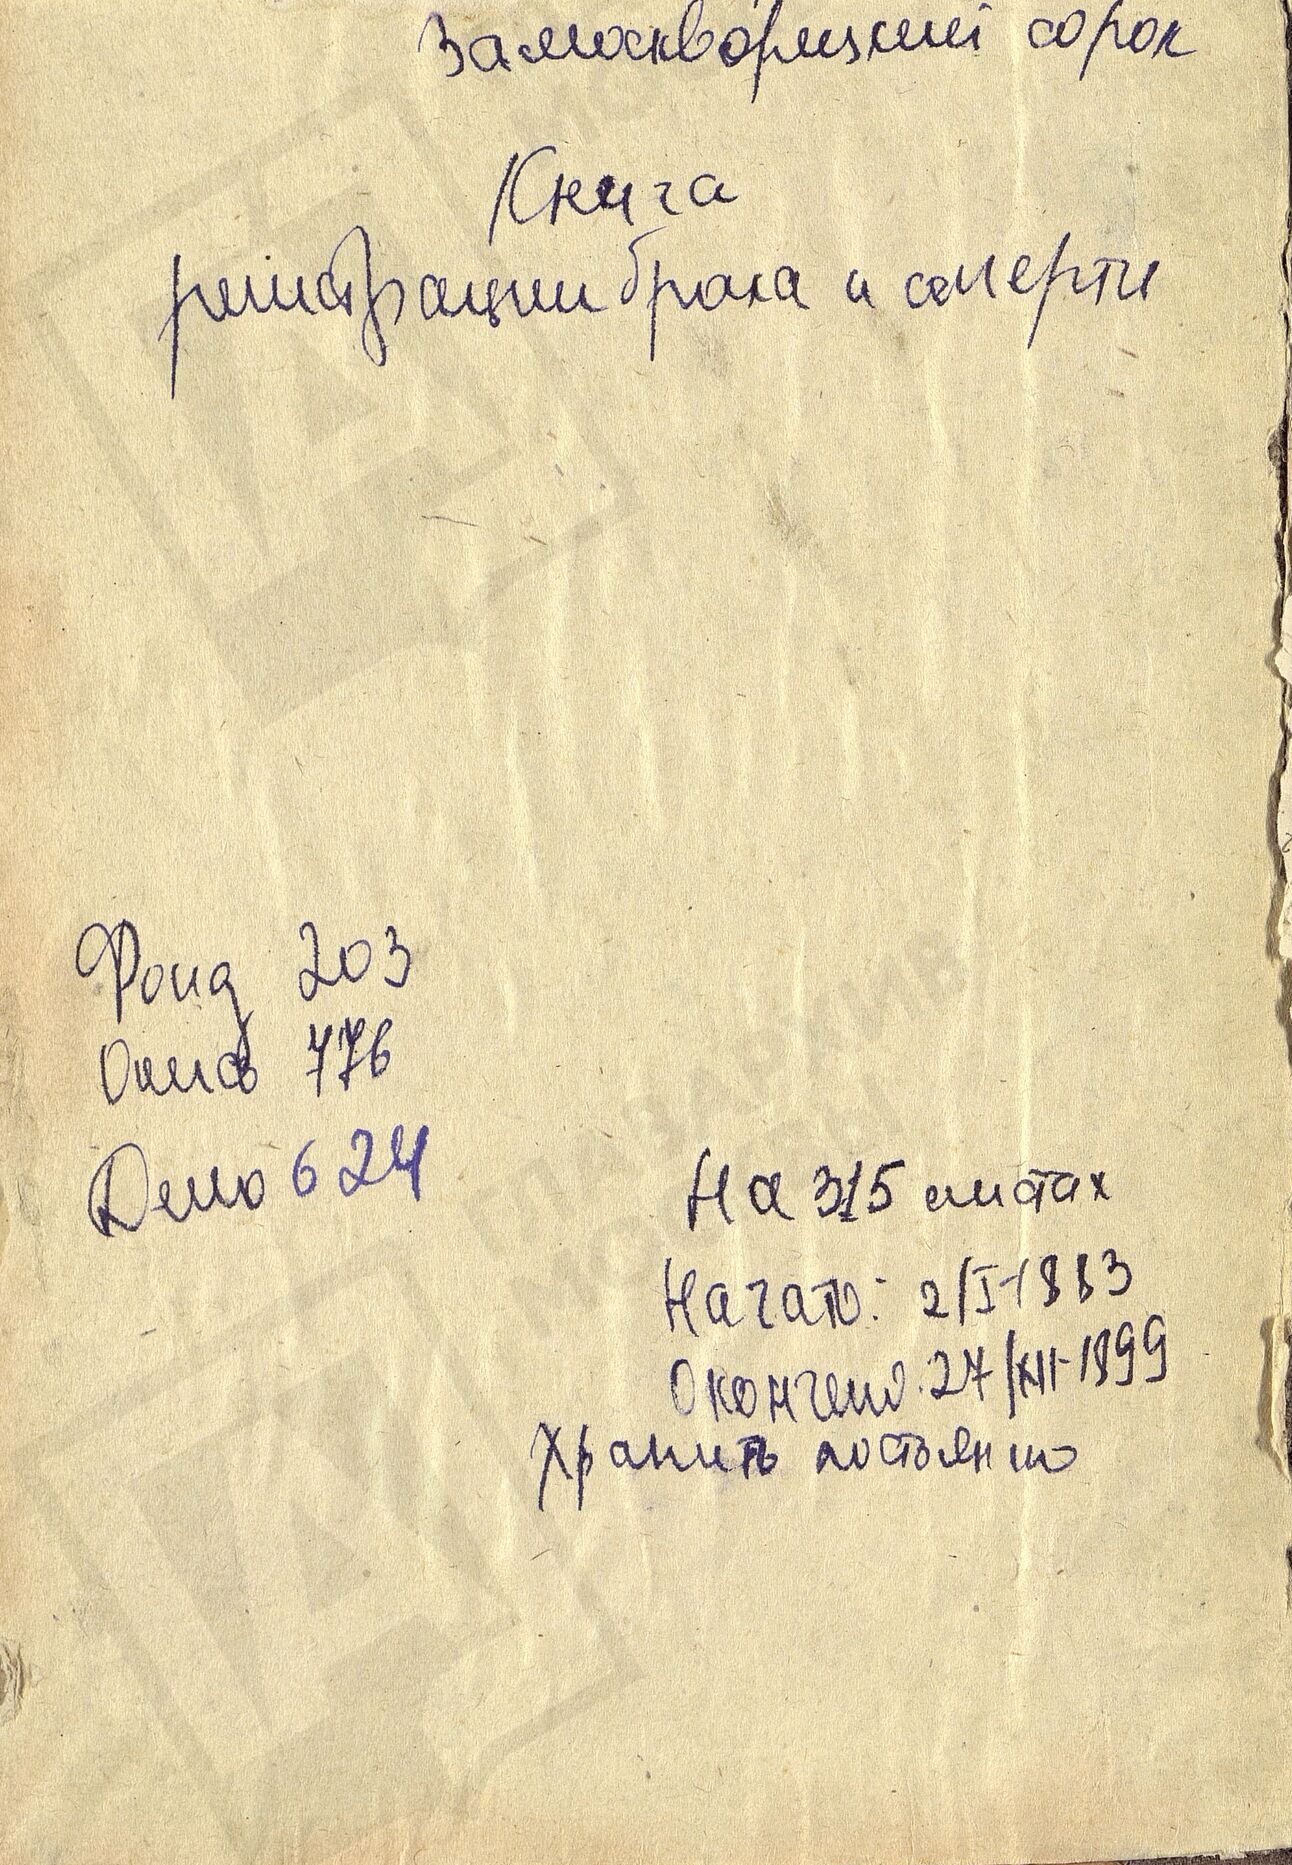 Замоскворецкий сорок
Книга
регистрации брака и смерти
Фонд 203
Опись 776
Дело 624
На 315 листах
Начато: 2/I-1883
Окончено 27/XII-1899
Хранить постоянно